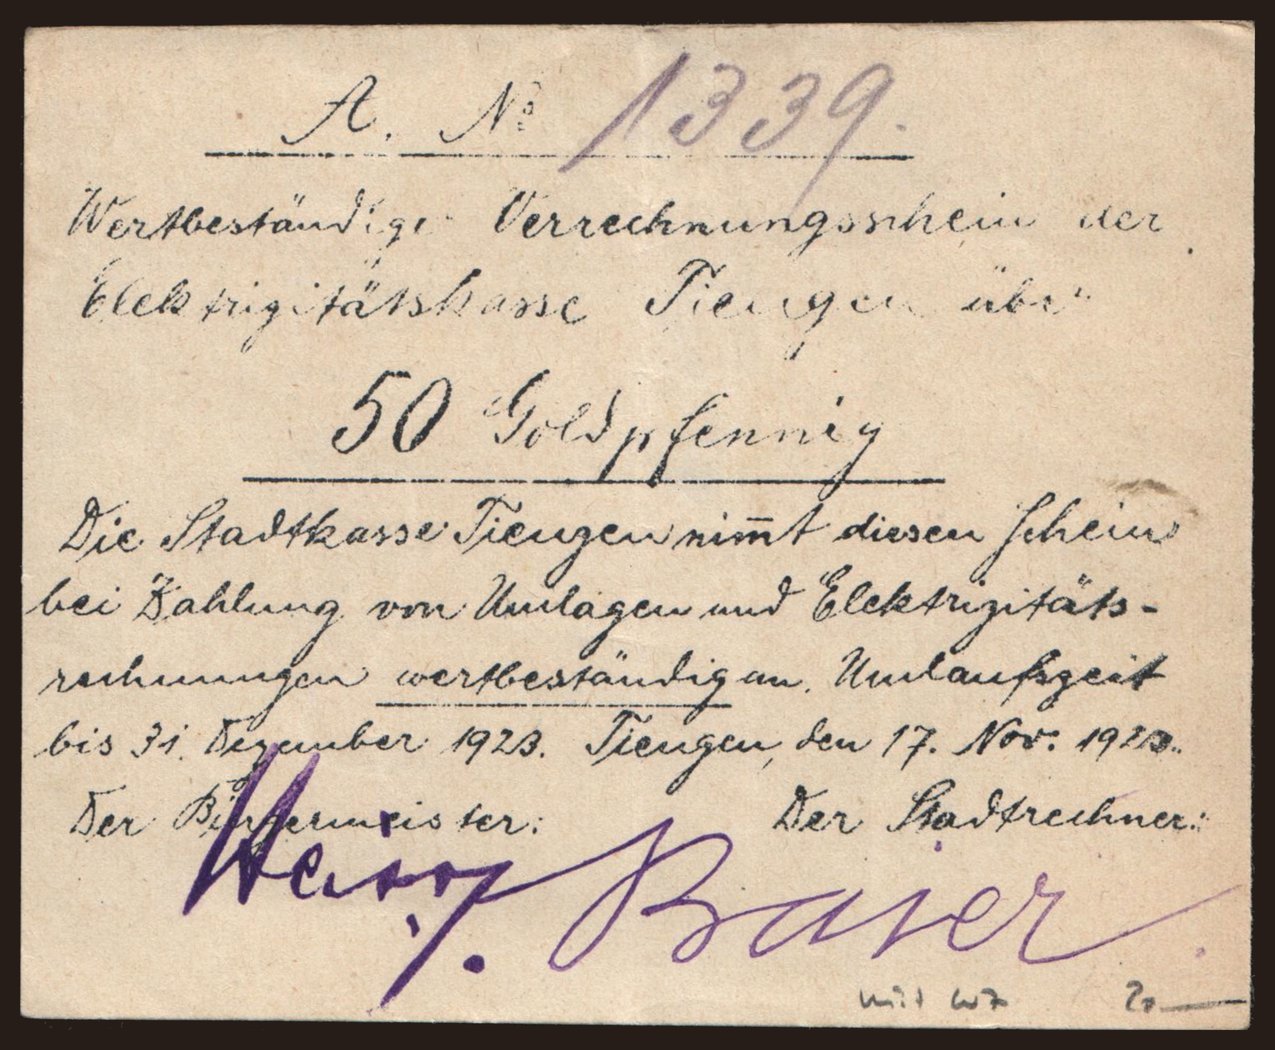 A. № 1339.
Wertbeständige Verrechnungsschein der
Elektrizitätskasse Tiengen über
50 Goldpfennig
Die Stadtkasse Tiengen nim̅t diesen Schein
bei Zahlung von Umlagen und Elektrizitäts-
rechnungen wertbeständig an. Umlaufszeit
bis 31. Dezember 1923. Tiengen, den 17. Nov. 1923.
Der Bürgermeister: Der Stadtrechner:
Baier
mit WZ 20